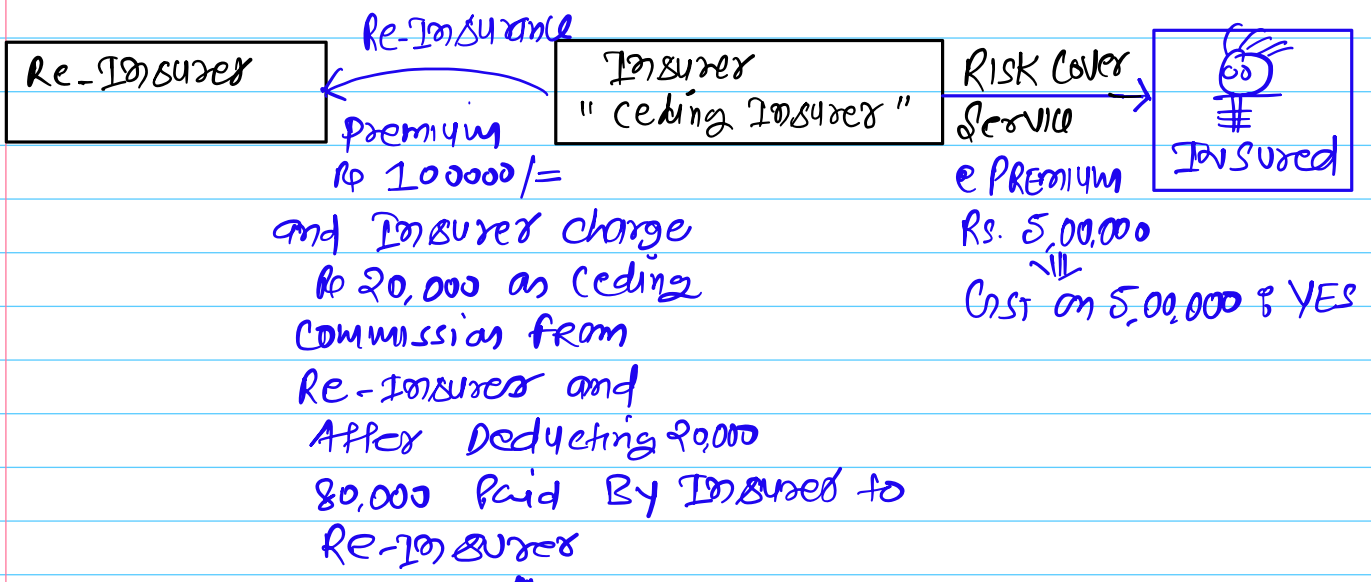 Re-Insurance
Re-Insurer
Insurer
" Ceding Insurer "
RISK Cover
Service
Insured
Premium
Rs 100000/=
and Insurer charge
Rs 20,000 as Ceding
Commission from
Re-Insurer and
After Deducting 20,000
80,000 Paid By Insurer to
Re-Insurer
@ PREmium
Rs. 5,00,000
GST on 5,00,000 : YES